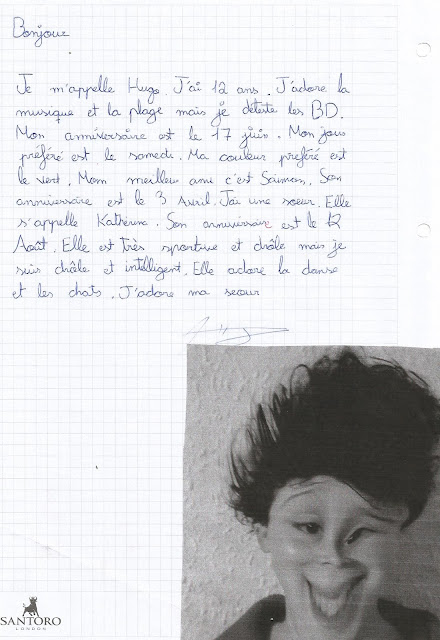 Bonjour
Je m'appelle Hugo. J'ai 12 ans. J'adore la
musique et la plage mais je déteste les BD.
Mon anniversaire est le 17 juin. Mon jour
préféré est le samedi. Ma couleur preferé est
le vert. Mon meilleur ami c'est Saimon. Son
anniversaire est le 3 Avril. J'ai une soeur. Elle
s'appelle Katherine. Son anniversaire est le 12
Août. Elle est très sportive et drôle mais je
suis drôle et intelligent. Elle adore la danse
et les chats. J'adore ma seour
SANTORO
LONDON